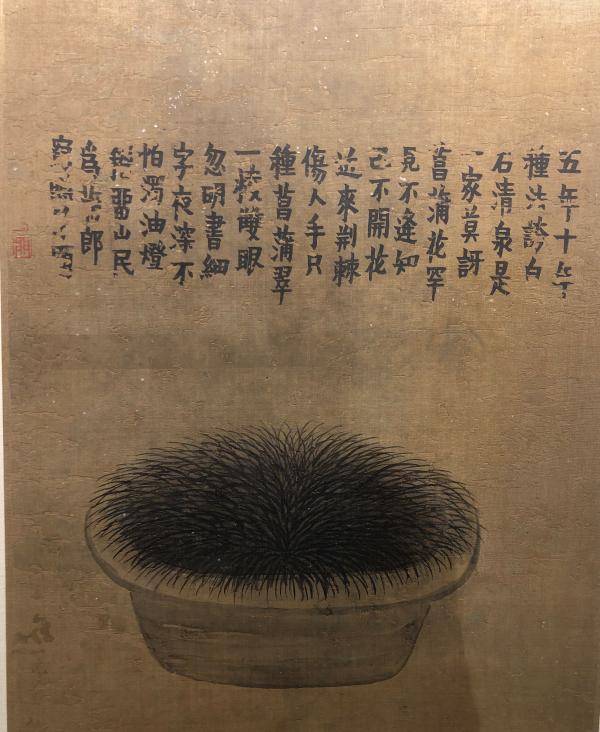 五年十年
種法誇白
石清泉是
一家莫訝
菖蒲花罕
見不逢知
己不開花
近來荊棘
傷人手只
種菖蒲翠
一叢雙眼
忽明書細
字夜深不
怕濁油燈
留山民
郎